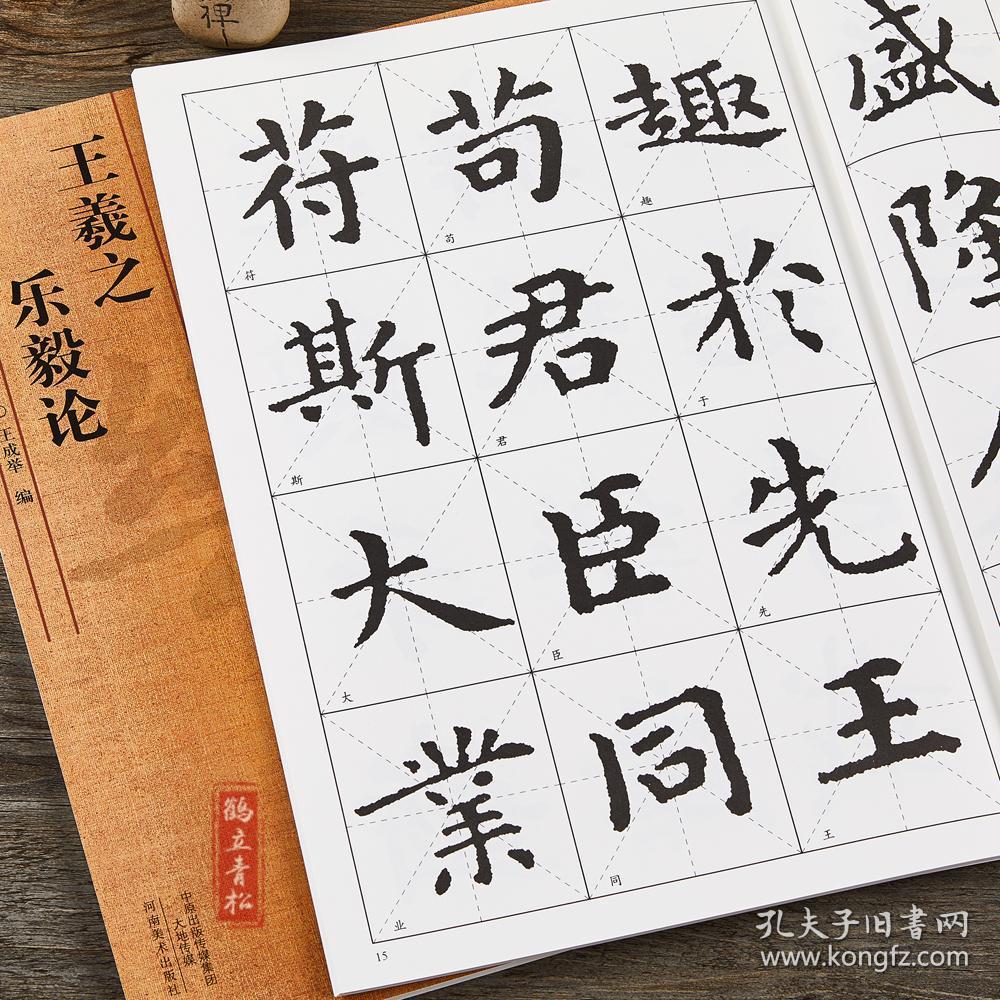 禅
王羲之
乐毅论
王成举 编
鹤立青松
中原出版传媒集团
大地传媒
河南美术出版社
盛隆
趣於先王
趣 于 先 王
苟君臣同
苟 君 臣 同
符斯大業
符 斯 大 业
15
孔夫子旧书网
www.kongfz.com